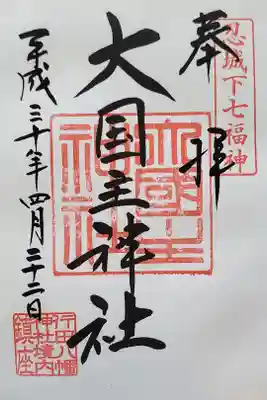 忍城下七福神
奉拝
大国主神社
大國主神社
平成三十年四月二十二日
行田八幡
神社境内
鎮座